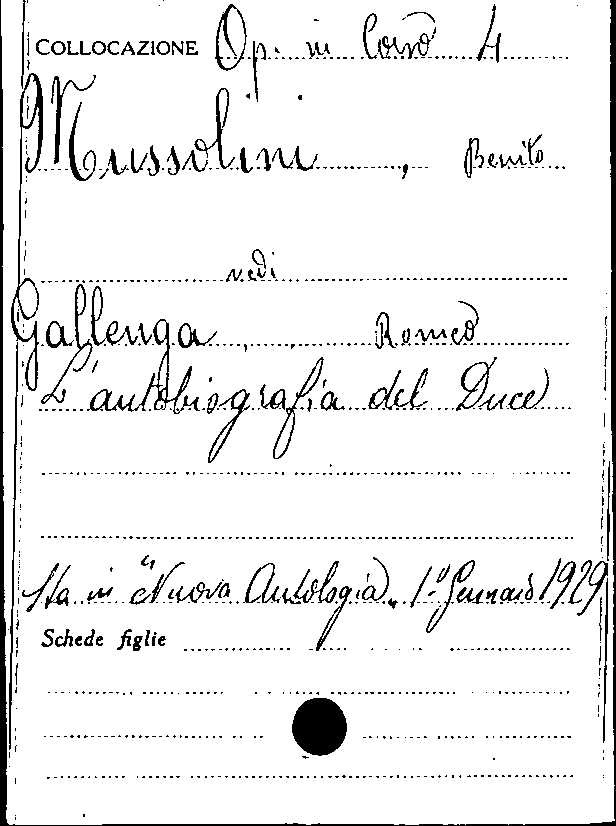 COLLOCAZIONE Op. in Corso 4
Mussolini, Benito
vedi
Gallenga, Romeo
L'autobiografia del Duce
Sta in "Nuova Antologia„ 1º Gennaio 1929
Schede figlie